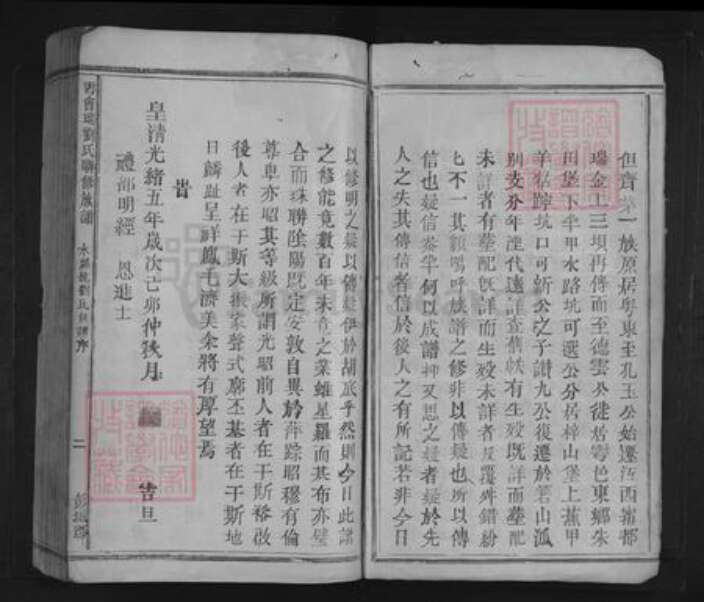 但齊華一族原居粤東至孔玉公始遷江西甯都
瑞金上三垻再傳而至德雲公徙居雩邑東鄉朱
田堡下半甲水路坑可選公分居梓山堡上蕉甲
羊牯踭坑口可新公之子讚九公復遷於若山孤
別支分年湮代遠詳查舊帙有生歿既詳而塟配
未詳者有塟配既詳而生歿未詳者反覆舛錯紛
七不一其額嗚呼族譜之修非以傳疑也所以傳
信也疑信參半何以成譜抑又思之疑者疑於先
人之失其傳信者信於後人之有所記若非今日
以修明之疑以傳疑伊於胡底乎然則今日此譜
之修能竟數百年未竟之業雖星羅而棊布亦璧
合而珠聯陰陽既定安敦自異於萍踪昭穆有倫
尊卑亦昭其等級所謂光昭前人者在于斯裕啟
後人者在于斯大振家聲式廓丕基者在于斯地
日麟趾呈祥鳳毛濟美余將有厚望焉
皆
皇清光緒五年歲次己卯仲秋月 吿旦
禮部明經 恩進士
劉氏聯修族譜
水 劉氏 譜序
二